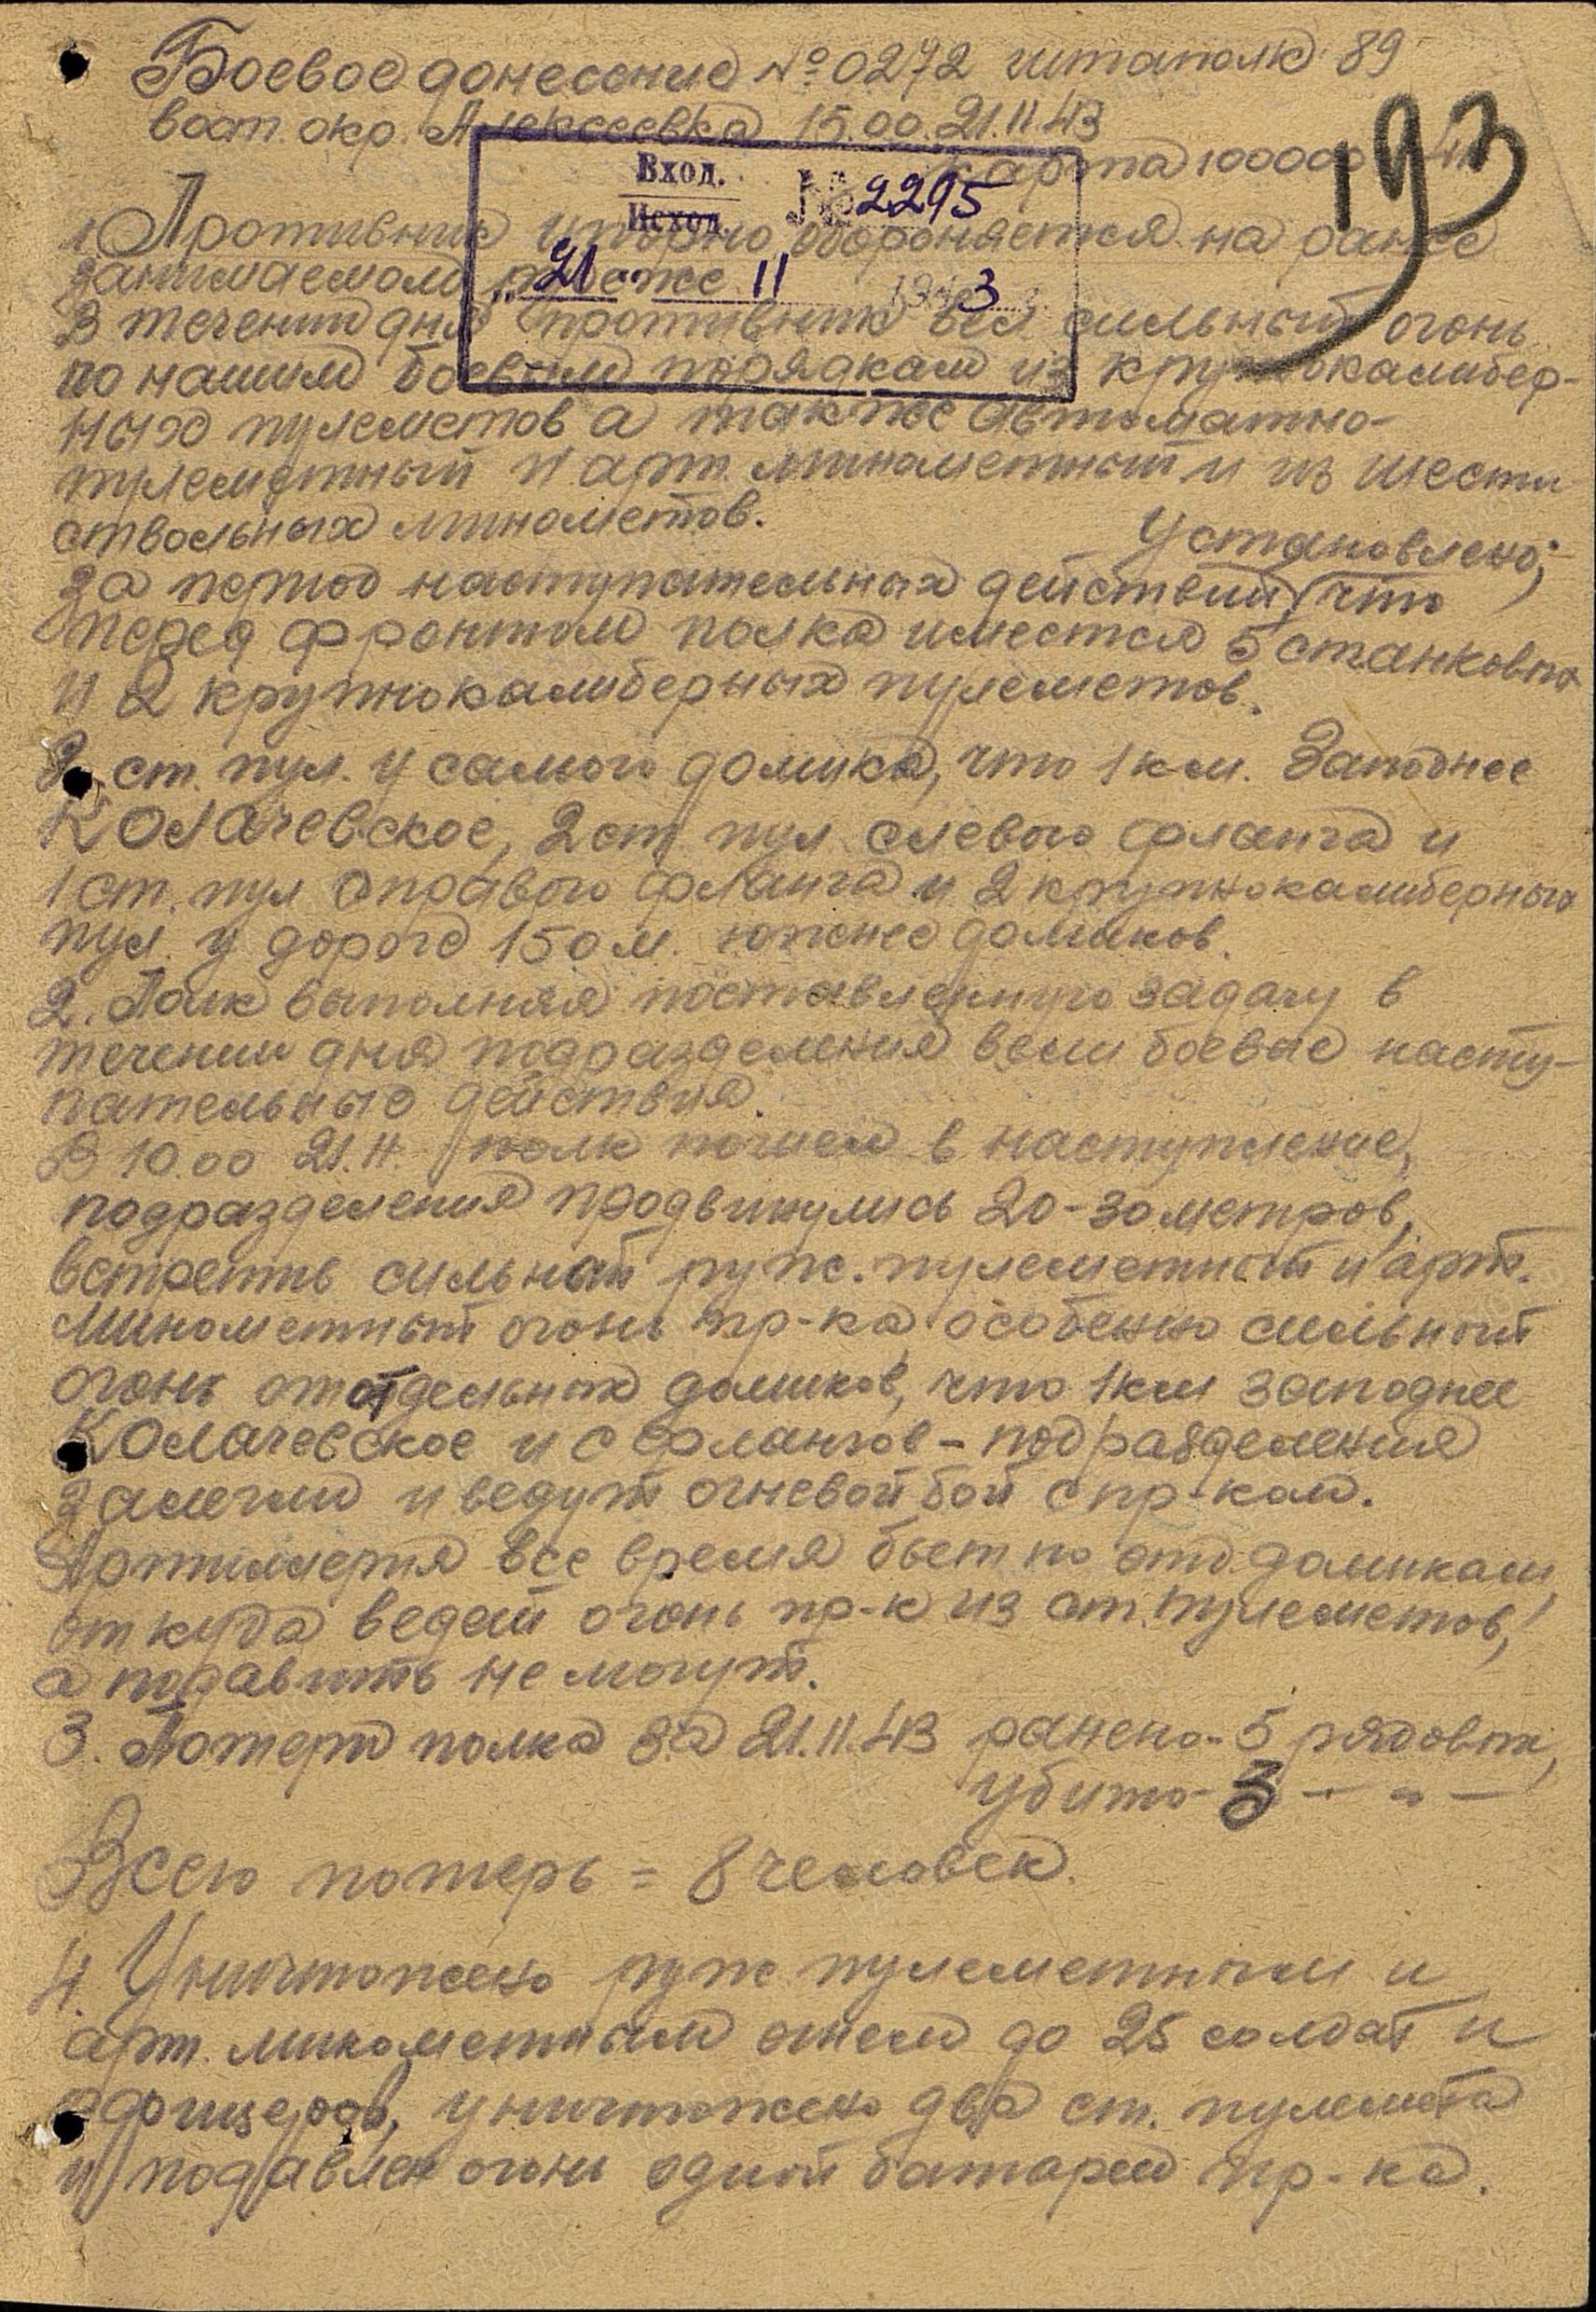 Боевое донесение № 0272 штаполк 89
вост. окр. Алексеевка 15.00. 21.11.43
карта 100000
193
Вход.
Исход. № 2295
"21" 11 1943
1. Противник упорно обороняется на ранее
занимаемом рубеже
В течении дня противник вел сильный огонь
по нашим боевым порядкам из крупнокалибер-
ных пулеметов а также автоматно-
пулеметный и арт. минометный и из шести
ствольных минометов.
Установлено;
За период наступательных действий, что
перед фронтом полка имеется 5 станковых
и 2 крупнокалиберных пулеметов.
2 ст. пул. у самого домика, что 1 км. Западнее
Колачевское, 2 ст пул с левого фланга и
1 ст. пул с правого фланга и 2 крупнокалиберных
пул. у дороге 150 м. южнее домиков.
2. Полк выполняя поставленную задачу в
течении дня подразделения вели боевые насту-
пательные действия.
В 10.00 21.11. полк пошел в наступление,
подразделения продвинулись 20-30 метров,
встретив сильный руж. пулеметный и арт.
минометный огонь пр-ка, особенно сильный
огонь от отдельных домиков, что 1 км западнее
Колачевское и с флангов - подразделения
залегли и ведут огневой бой с пр-ком.
Артиллерия все время бьет по отд. домикам,
откуда ведет огонь пр-к из ст. пулеметов,
а подавить не могут.
3. Потери полка за 21.11.43 ранено - 5 рядовых,
убито - 3 - " -
Всего потерь = 8 человек.
4. Уничтожено руж пулеметным и
арт. минометным огнем до 25 солдат и
офицеров, уничтожено два ст. пулемета
и подавлен огонь одной батареи пр-ка.